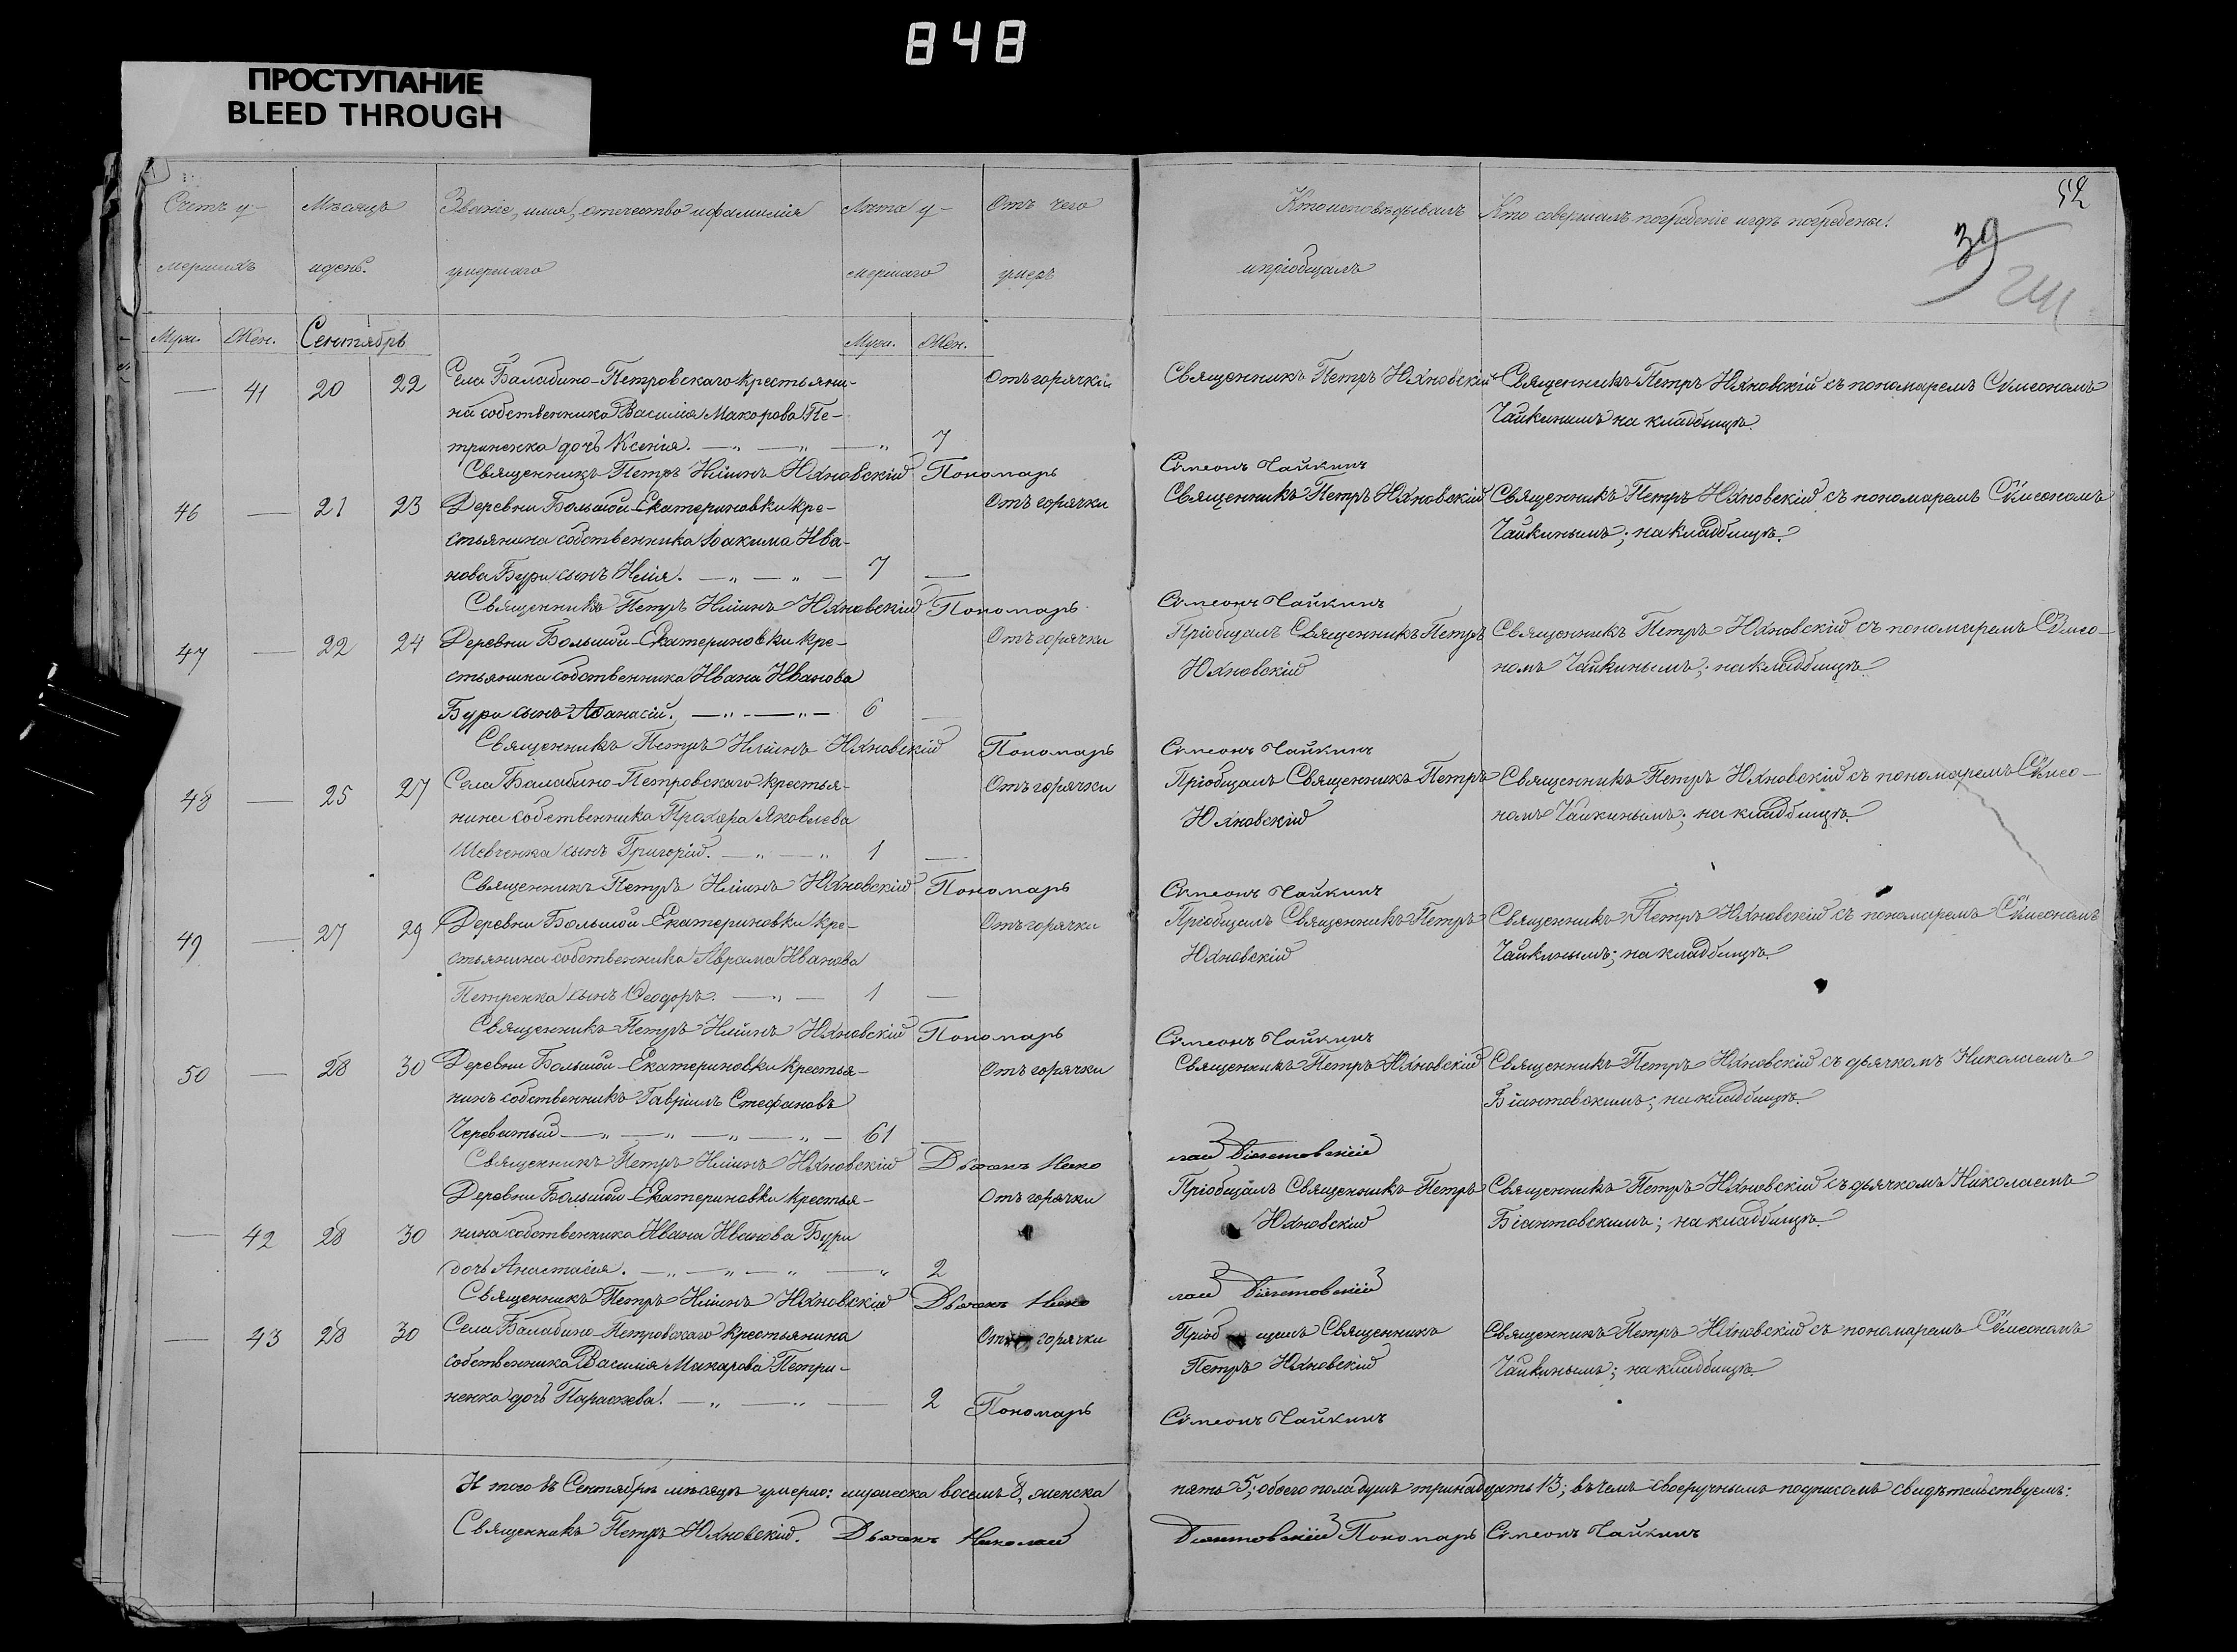 848
ПРОСТУПАНИЕ
BLEED THROUGH
52
39
Счетъ у-
мершихъ
Мѣсяцъ
и день.
Званіе, имя, отчество и фамилія
умершаго
Лѣта у-
мершаго
Отъ чего
умеръ
Кто исповѣдывалъ
и пріобщалъ
Кто совершалъ погребеніе и гдѣ погребены.
Муж. Жен. Сентябрь Муж. Жен.
— 41 20 22 Села Балабино-Петровскаго крестьяни- Отъ горячки Священникъ Петръ Юхновскій Священникъ Петръ Юхновскій съ пономаремъ Сѵмеономъ
на собственника Василія Макорова Пе- Чайкинымъ на кладбищѣ.
триненка дочь Ксенія. 7
Священникъ Петръ Иліинъ Юхновскій Пономарь Симеонъ Чайкинъ
46 — 21 23 Деревни Большой-Екатериновки кре- Отъ горячки Священникъ Петръ Юхновскій Священникъ Петръ Юхновскій съ пономаремъ Сѵмеономъ
стьянина собственника Іоакима Ива- Чайкинымъ; на кладбищѣ.
нова Бури сынъ Илія. 7 —
Священникъ Петръ Иліинъ Юхновскій Пономарь Симеонъ Чайкинъ
47 — 22 24 Деревни Большой-Екатериновки кре- Отъ горячки Пріобщалъ Священникъ Петръ Священникъ Петръ Юхновскій съ пономаремъ Сѵмео-
стьянина собственника Ивана Иванова Юхновскій номъ Чайкинымъ; на кладбищѣ.
Бури сынъ Аѳанасій. 6 —
Священникъ Петръ Иліинъ Юхновскій Пономарь Симеонъ Чайкинъ
48 — 25 27 Села Балабино-Петровскаго крестья- Отъ горячки Пріобщалъ Священникъ Петръ Священникъ Петръ Юхновскій съ пономаремъ Сѵмео-
нина собственника Прохора Яковлева Юхновскій номъ Чайкинымъ; на кладбищѣ.
Шевченка сынъ Григорій. 1 —
Священникъ Петръ Иліинъ Юхновскій Пономарь Симеонъ Чайкинъ
49 — 27 29 Деревни Большой-Екатериновки кре- Отъ горячки Пріобщалъ Священникъ Петръ Священникъ Петръ Юхновскій съ пономаремъ Сѵмеономъ
стьянина собственника Аврама Иванова Юхновскій Чайкинымъ; на кладбищѣ.
Петренка сынъ Ѳеодоръ. 1 —
Священникъ Петръ Иліинъ Юхновскій Пономарь Симеонъ Чайкинъ
50 — 28 30 Деревни Большой-Екатериновки крестья- Отъ горячки Священникъ Петръ Юхновскій Священникъ Петръ Юхновскій съ дьячкомъ Николаемъ
нинъ собственникъ Гавріилъ Стефановъ Біантовскимъ; на кладбищѣ.
Череватый 61 —
Священникъ Петръ Иліинъ Юхновскій Дьячекъ Нико лай Біянтовскій
Деревни Большой-Екатериновки крестья- Отъ горячки Пріобщалъ Священникъ Петръ Священникъ Петръ Юхновскій съ дьячкомъ Николаемъ
— 42 28 30 нина собственника Ивана Иванова Бури Юхновскій Біантовскимъ; на кладбищѣ.
дочь Анастасія. 2
Священникъ Петръ Иліинъ Юхновскій Дьячекъ Нико лай Біянтовскій
— 43 28 30 Села Балабино-Петровскаго крестьянина Отъ горячки Пріобщалъ Священникъ Священникъ Петръ Юхновскій съ пономаремъ Сѵмеономъ
собственника Василія Макарова Петри- Петръ Юхновскій Чайкинымъ; на кладбищѣ.
ненка дочь Параскева. 2
Пономарь Симеонъ Чайкинъ
И того въ Сентябрѣ мѣсяцѣ умерло: мужеска восемь 8, женска пять 5; обоего пола душъ тринадцать 13; въ чемъ своеручнымъ подписомъ свидѣтельствуемъ:
Священникъ Петръ Юхновскій. Дьячекъ Николай Біянтовскій Пономарь Симеонъ Чайкинъ